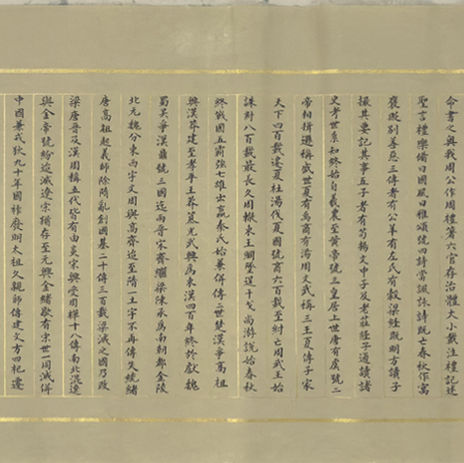 命書之奧我周公作周禮著六官存治體大小戴注禮記述
聖言禮樂備曰國風曰雅頌號四詩當諷詠詩既亡春秋作寓
褒貶別善惡三傳者有公羊有左氏有穀梁經既明方讀子
撮其要記其事五子者有荀揚文中子及老莊經子通讀諸
史考世系知終始自羲農至黃帝號三皇居上世唐有虞號二
帝相揖遜稱盛世夏有禹商有湯周文武稱三王夏傳子家
天下四百載遷夏社湯伐夏國號商六百載至紂亡周武王始
誅紂八百載最長久周轍東王綱墜逞干戈尚游說始春秋
終戰國五霸強七雄出嬴秦氏始兼併傳二世楚漢爭高祖
興漢業建至孝平王莽篡光武興為東漢四百年終於獻魏
蜀吳爭漢鼎號三國迄兩晉宋齊繼梁陳承為南朝都金陵
北元魏分東西宇文周與高齊迨至隋一土宇不再傳失統緒
唐高祖起義師除隋亂創國基二十傳三百載梁滅之國乃改
梁唐晉及漢周稱五代皆有由炎宋興受周禪十八傳南北混遼
與金帝號紛迨滅遼宋猶存至元興金緒歇有宗世一同滅併
中國兼戎狄九十年國祚廢明太祖久親師傳建文方四祀遷